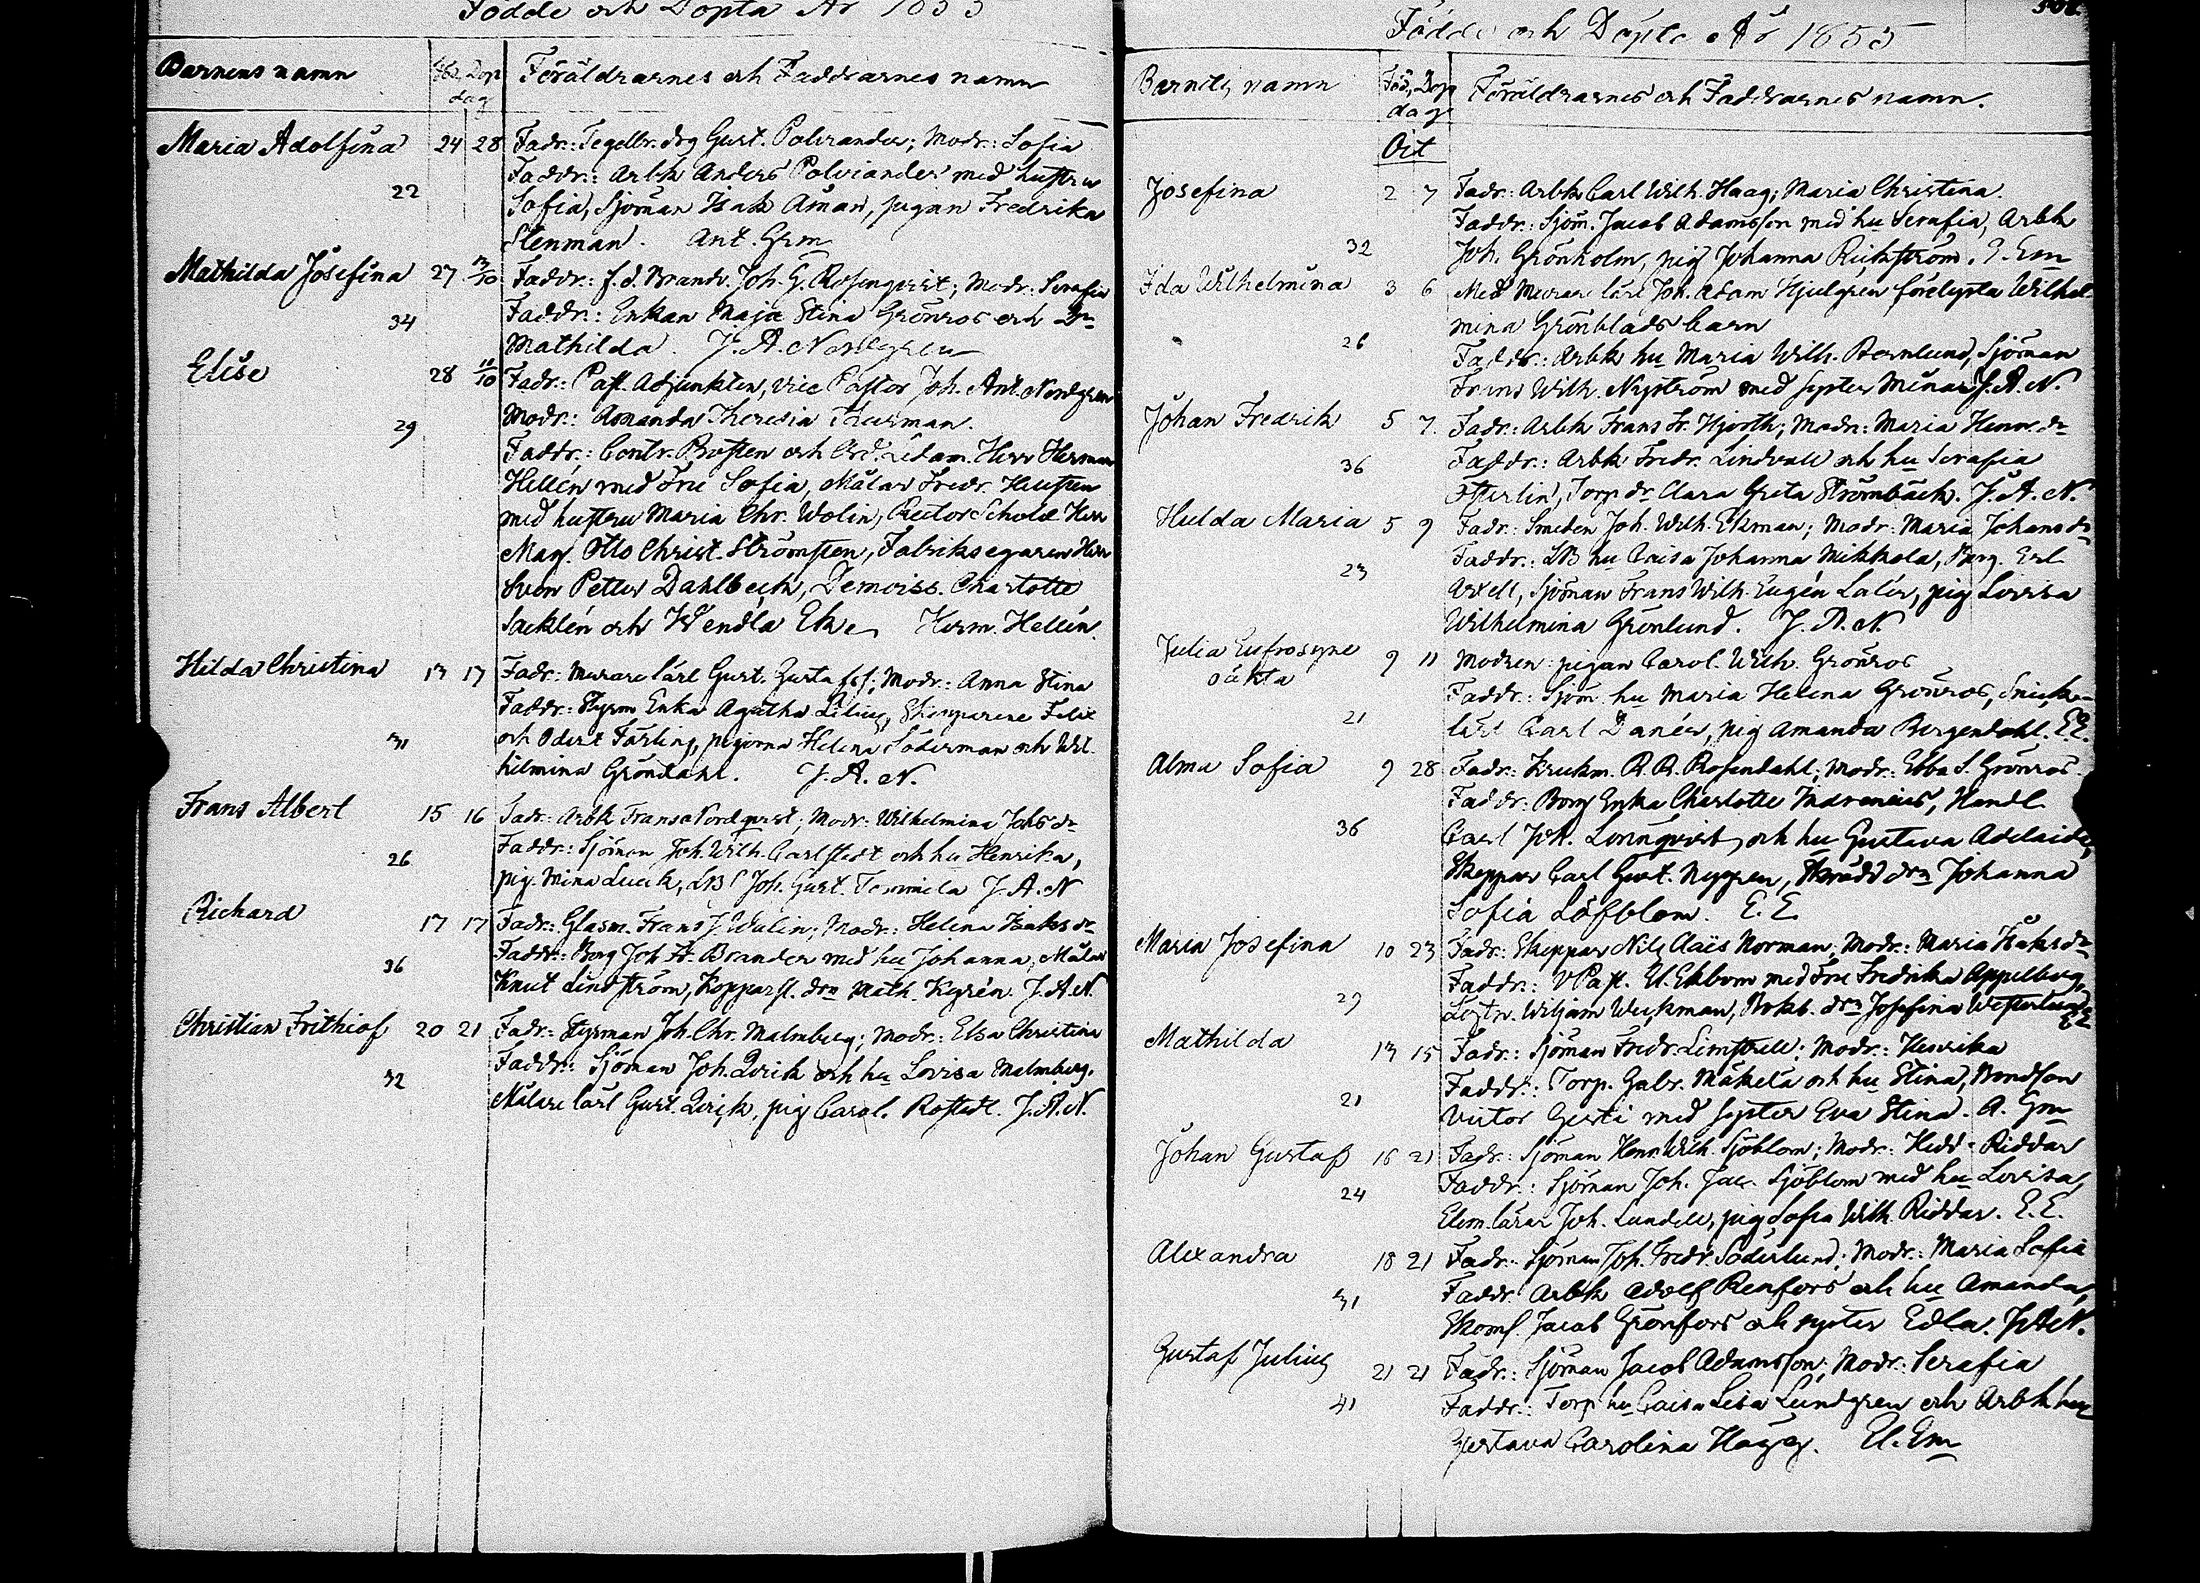 Födde och Döpta År 1855
Barnens namn Föd. Döp. dag Föräldrarnes och Faddrarnes namn
Maria Adolfina 24 28 Fadr.: Tegelbr. drg Gust. Polviander; Modr.: Sofia
Faddr.: Arbk Anders Polviander med hustru
22 Sofia, Sjöman Isak Åman, pigan Fredrika
Stenman. Ant. Grm
Mathilda Josefina 27 13/10 Faddr.: f.d. Brandv. Joh. G. Rosenqvist; Modr.: Serafia
34 Faddr.: Enkan Maja Stina Grönros och Dr
Mathilda. J. A. Nordgren
Elise 28 11/10 Fadr.: Past. Adjunkten, vice Pastor Joh. Ant. Nordgren
Modr.: Amanda Theresia Thurman.
29 Faddr.: Contr. Prosten och Herr Herman
Hellén med Fru Sofia, Målar Fredr. Hellsten
med hustru Maria Chr. Wolin, Rector Scholæ Herr
Mag. Otto Christ. Strömsten, Fabriksegaren Herr
Sven Petter Dahlbeck, Demoiss. Charlotte
Sacklén och Wendla Ek. Herm. Hellén.
Hilda Christina 13 17 Fadr.: Murare lärl Gust. Gustafss; Modr.: Anna Stina
Faddr: Styrm Enka Agatha Lilius, Skepparene Felix
31 och Oderst Färling, pigorna Helena Söderman och Wil-
helmina Gröndahl. J. A. N.
Frans Albert 15 16 Fadr.: Arbk Frans Nordqvist; Modr: Wilhelmina Johsdr
26 Faddr.: Sjöman Joh. Wilh. Carlstedt och hu Henrika,
pig. Mina Luck, LBS Joh. Gust. Tommila J. A. N
Richard 17 17 Fadr.: Glasm. Frans J. Walin; Modr.: Helena Isaksdr
36 Faddr.: Borg Joh. Fr. Brander med hu Johanna, Målar
Knut Lindström, Kopparsl. drn Math. Kyrén. J. A. N.
Christian Frithiof 20 21 Fadr.: Styrman Joh. Chr. Malmberg; Modr.: Elsa Christina
32 Faddr.: Sjöman Joh. Qvick och hu Lovisa Malmberg,
Målare lärl Gust. Qvick, pig Carol. Rostedt. J. A. N.
Födde och Döpte År 1855
Barnets namn Föd. Döp. dag Föräldrarnes och Faddrarnes namn.
Oct
Josefina 2 7 Fadr: Arbk Carl Wilh. Haag; Maria Christina.
Faddr.: Sjöm. Jacob Adamsson med hu Serafia, Arbk
32 Joh. Grönholm, pig Johanna Rickström. E. Em
Ida Wilhelmina 3 6 Med Murare lärl Joh. Adam Hjulgren förelupta Wilhel-
mina Grönblads barn
26 Faddr.: Arbk hu Maria Wilh. Bernlund, Sjöman
Frans Wilh. Nyström med syster Mina. J. A. N.
Johan Fredrik 5 7. Fadr.: Arbk Frans Fr. Hjorth; Modr.: Maria Henr. dr
36 Faddr.: Arbk Fredr. Lindvall och hu Serafia
Österlin, Torp. dr Clara Greta Strömbäck. J. A. N.
Hulda Maria 5 9 Fadr: Smeden Joh. Wilh. Ekman; Modr: Maria Johansdr
23 Faddr.: LB hu Caisa Johanna Mikkola, Borg. Erl
Axell, Sjöman Frans Wilh. Eugén Lalér, pig Lovisa
Wilhelmina Grönlund. J. A. N.
Julia Eufrosyne 9 11 Modren: pigan Carol. Wilh. Grönros
oäkta Faddr.: Sjöm. hu Maria Helena Grönros, Snick-
21 lärl Carl Danér, pig Amanda Bergendahl. E. E.
Alma Sofia 9 28 Fadr: Krukm. R. R. Rosendahl; Modr: Ebba S. Grönros.
Faddr: Borg Enka Charlotte Indrenius, Handl.
36 Carl Joh. Lönnqvist och hu Gustava Adelaide,
Skeppar Carl Gust. Nygren, Skrädd drn Johanna
Sofia Löfblom. E. E.
Maria Josefina 10 23 Fadr: Skeppar Nils Claës Norman; Modr: Maria Isaksdr
Faddr.: VPast. U. Ekbom med Fru Fredrika Appelberg,
29 Wiljam Weckman, Brkb. drn Josefina Westerlund. EE
Mathilda 13 15 Fadr.: Sjöman Fredr. Limstell; Modr.: Henrika
Faddr.: Torp. Gabr. Mäkelä och hu Stina, Bondson
21 Victor Gerti med syster Eva Stina. A. Grm
Johan Gustaf 16 21 Fadr.: Sjöman Henr. Wilh. Sjöblom; Modr.: Hedd. Riddar
Faddr.: Sjöman Joh. Jac. Sjöblom med hu Lovisa,
24 Elem. lärar Joh. Lundell, pig Sofia Wilh. Riddar. E. E.
Alexandra 18 21 Fadr.: Sjöman Joh. Fredr. Söderlund; Modr.: Maria Sofia
31 Faddr. Arbk Adolf Renfors och hu Amanda,
Skoms. Jacob Grönfors och syster Edla. J. A. N.
Gustaf Julius 21 21 Fadr.: Sjöman Jacob Adamsson; Modr: Serafia
41 Faddr.: Torp hu Caisa Lisa Lundgren och Arbk hu
Gustava Carolina Hagg. U. Em